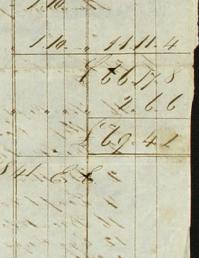 1.10
1.10 11.11.4
£66.17.8
2.6.6
£69.4.2
E. E.